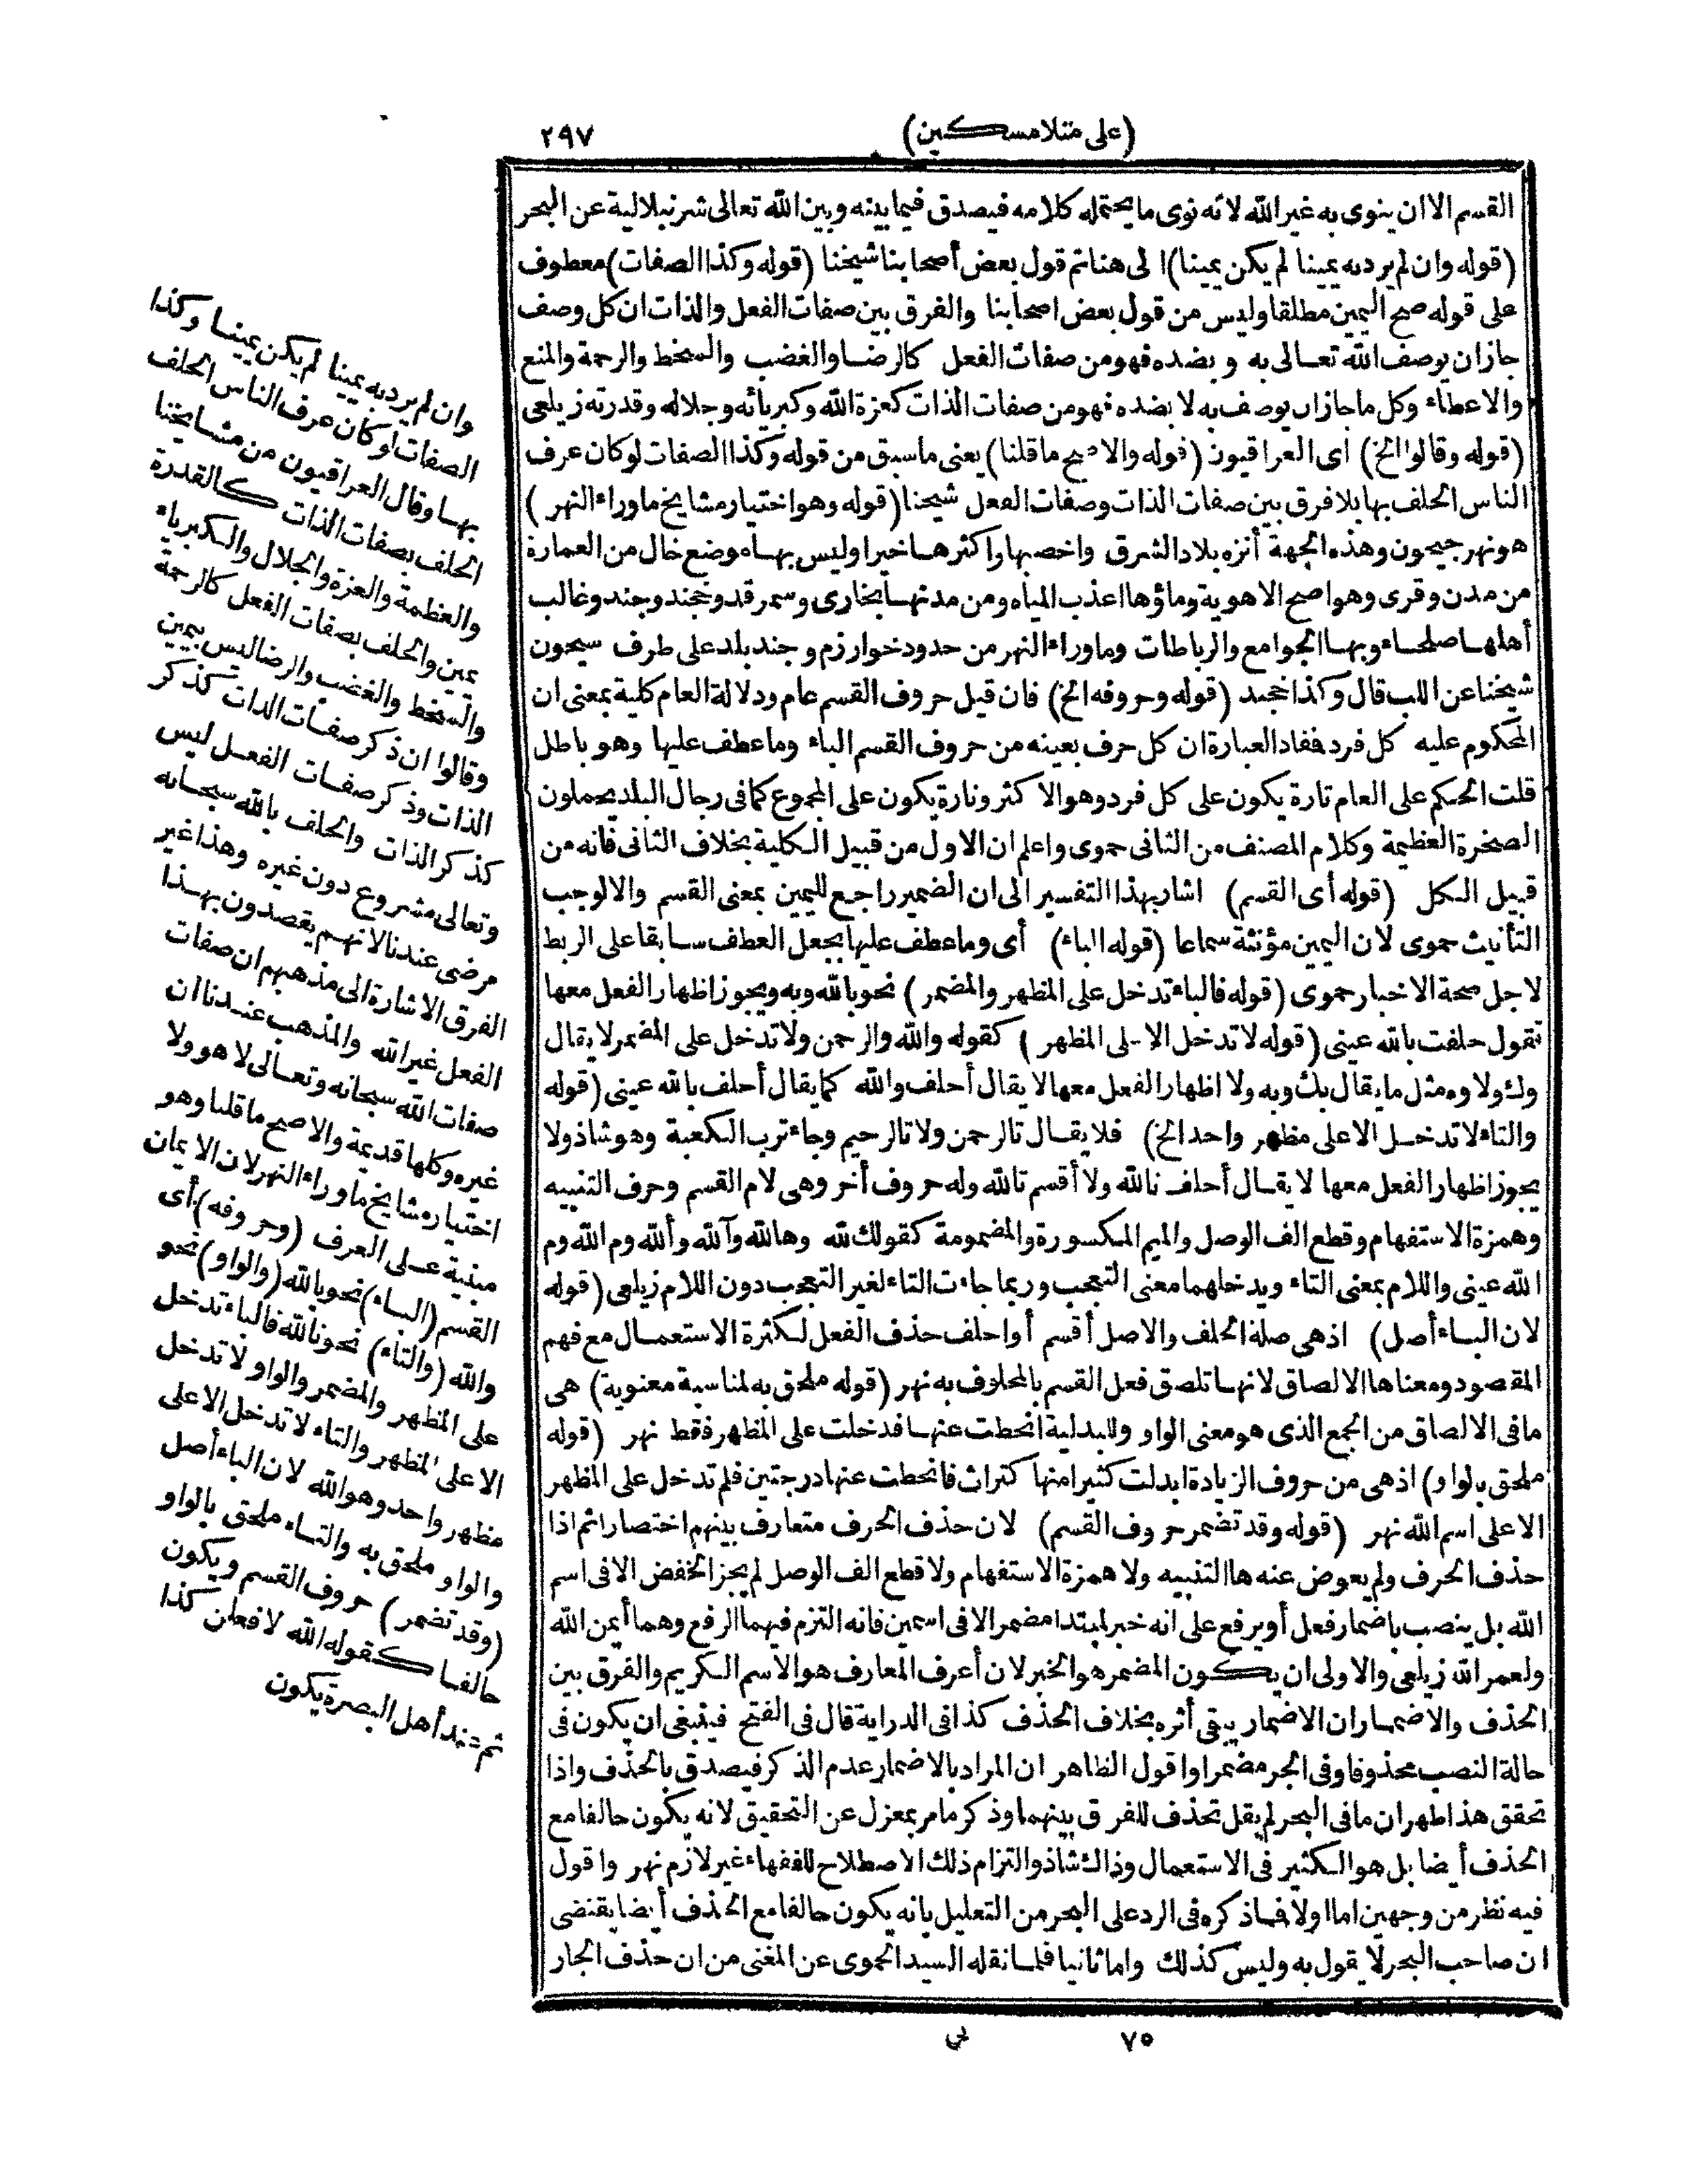 (على منلا مسكين) ٢٩٧
القسم الا ان ينوى به غير الله لانه نوى ما يحتمله كلامه فيصدق فيما بينه وبين الله تعالى شرنبلالية عن البحر
(قوله وان لم يرد به يمينا لم يكن يمينا) الى هنا تم قول بعض أصحابنا شيخنا (قوله وكذا الصفات) معطوف
على قوله صح اليمين مطلقا وليس من قول بعض اصحابنا والفرق بين صفات الفعل والذات ان كل وصف
جاز ان يوصف الله تعالى به وبضده فهو من صفات الفعل كالرضا والغضب والسخط والرحمة والمنع
والاعطاء وكل ما جاز ان يوصف به لا بضده فهو من صفات الذات كعزة الله وكبريائه وجلاله وقدرته زيلعى
(قوله وقالوا الخ) اى العراقيون (قوله والاصح ما قلنا) يعنى ما سبق من قوله وكذا الصفات لو كان عرف
الناس الحلف بها بلا فرق بين صفات الذات وصفات الفعل شيخنا (قوله وهو اختيار مشايخ ما وراء النهر)
هو نهر جيحون وهذه الجهة أنزه بلاد الشرق واخصبها واكثرها خيرا وليس بها موضع خال من العمارة
من مدن وقرى وهو اصح الاهوية وماؤها اعذب المياه ومن مدنها بخارى وسمرقند وخجند وجند وغالب
أهلها صلحاء وبها الجوامع والرباطات وما وراء النهر من حدود خوارزم وجند بلد على طرف سيحون
شيخنا عن اللب قال وكذا خجند (قوله وحروفه الخ) فان قيل حروف القسم عام ودلالة العام كلية بمعنى ان
المحكوم عليه كل فرد فمفاد العبارة ان كل حرف بعينه من حروف القسم الباء وما عطف عليها وهو باطل
قلت الحكم على العام تارة يكون على كل فرد وهو الاكثر وتارة يكون على المجموع كما فى رجال البلد يحملون
الصخرة العظيمة وكلام المصنف من الثانى حموى واعلم ان الاول من قبيل الكلية بخلاف الثانى فانه من
قبيل الكل (قوله أى القسم) اشار بهذا التفسير الى ان الضمير راجع لليمين بمعنى القسم والا لوجب
التأنيث حموى لان اليمين مؤنثة سماعا (قوله الباء) أى وما عطف عليها بجعل العطف سابقا على الربط
لاجل صحة الاخبار حموى (قوله فالباء تدخل على المظهر والمضمر) نحو بالله وبه ويجوز اظهار الفعل معها
تقول حلفت بالله عينى (قوله لا تدخل الا على المظهر) كقوله والله والرحمن ولا تدخل على المضمر لا يقال
وك ولا وه مثل ما يقال بك وبه ولا اظهار الفعل معها لا يقال أحلف والله كما يقال أحلف بالله عينى (قوله
والتاء لا تدخل الا على مظهر واحد الخ) فلا يقال تالرحمن ولا تالرحيم وجاء ترب الكعبة وهو شاذ ولا
يجوز اظهار الفعل معها لا يقال أحلف تالله ولا أقسم تالله وله حروف أخر وهى لام القسم وحرف التنبيه
وهمزة الاستفهام وقطع الف الوصل والميم المكسورة والمضمومة كقولك لله وها لله وآلله وألله وم الله وم
الله عينى واللام بمعنى التاء ويدخلهما معنى التعجب وربما جاءت التاء لغير التعجب دون اللام زيلعى (قوله
لان الباء أصل) اذ هى صلة الحلف والاصل أقسم أو احلف حذف الفعل لكثرة الاستعمال مع فهم
المقصود ومعناها الالصاق لانها تلصق فعل القسم بالمحلوف به نهر (قوله ملحق به لمناسبة معنوية) هى
ما فى الالصاق من الجمع الذى هو معنى الواو وللبدلية انحطت عنها فدخلت على المظهر فقط نهر (قوله
ملحق بالواو) اذ هى من حروف الزيادة ابدلت كثيرا منها كتراث فانحطت عنها درجتين فلم تدخل على المظهر
الا على اسم الله نهر (قوله وقد تضمر حروف القسم) لان حذف الحرف متعارف بينهم اختصارا ثم اذا
حذف الحرف ولم يعوض عنه ها التنبيه ولا همزة الاستفهام ولا قطع الف الوصل لم يجز الخفض الا فى اسم
الله بل ينصب باضمار فعل أو يرفع على انه خبر لمبتدا مضمر الا فى اسمين فانه التزم فيهما الرفع وهما أيمن الله
ولعمر الله زيلعى والاولى ان يكون المضمر هو الخبر لان أعرف المعارف هو الاسم الكريم والفرق بين
الحذف والاضمار ان الاضمار يبقى أثره بخلاف الحذف كذا فى الدراية قال فى الفتح فينبغى ان يكون فى
حالة النصب محذوفا وفى الجر مضمرا واقول الظاهر ان المراد بالاضمار عدم الذكر فيصدق بالحذف واذا
تحقق هذا ظهر ان ما فى البحر لم يقل تحذف للفرق بينهما وذكر ما مر بمعزل عن التحقيق لانه يكون حالفا مع
الحذف أيضا بل هو الكثير فى الاستعمال وذاك شاذ والتزام ذلك الاصطلاح للفقهاء غير لازم نهر واقول
فيه نظر من وجهين اما اولا فما ذكره فى الرد على البحر من التعليل بانه يكون حالفا مع الحذف أيضا يقتضى
ان صاحب البحر لا يقول به وليس كذلك واما ثانيا فلما نقله السيد الحموى عن المغنى من ان حذف الجار
وان لم يرد به يمينا لم يكن يمينا وكذا
الصفات لو كان عرف الناس الحلف
بها وقال العراقيون من مشايخنا
الحلف بصفات الذات كالقدرة
والعظمة والعزة والجلال والكبرياء
يمين والحلف بصفات الفعل كالرحمة
والسخط والغضب والرضا ليس بيمين
وقالوا ان ذكر صفات الذات كذكر
الذات وذكر صفات الفعل ليس
كذكر الذات والحلف بالله سبحانه
وتعالى مشروع دون غيره وهذا غير
مرضى عندنا لانهم يقصدون بهذا
الفرق الاشارة الى مذهبهم ان صفات
الفعل غير الله والمذهب عندنا ان
صفات الله سبحانه وتعالى لا هو ولا
غيره وكلها قديمة والاصح ما قلنا وهو
اختيار مشايخ ما وراء النهر لان الايمان
مبنية على العرف (وحروفه) أى
القسم (الباء) نحو بالله (والواو) نحو
والله (والتاء) نحو تالله فالباء تدخل
على المظهر والمضمر والواو لا تدخل
الا على المظهر والتاء لا تدخل الا على
مظهر واحد وهو الله لان الباء أصل
والواو ملحق به والتاء ملحق بالواو
(وقد تضمر) حروف القسم ويكون
حالفا كقوله الله لافعلن كذا
ثم عند أهل البصرة يكون
٧٥ نى